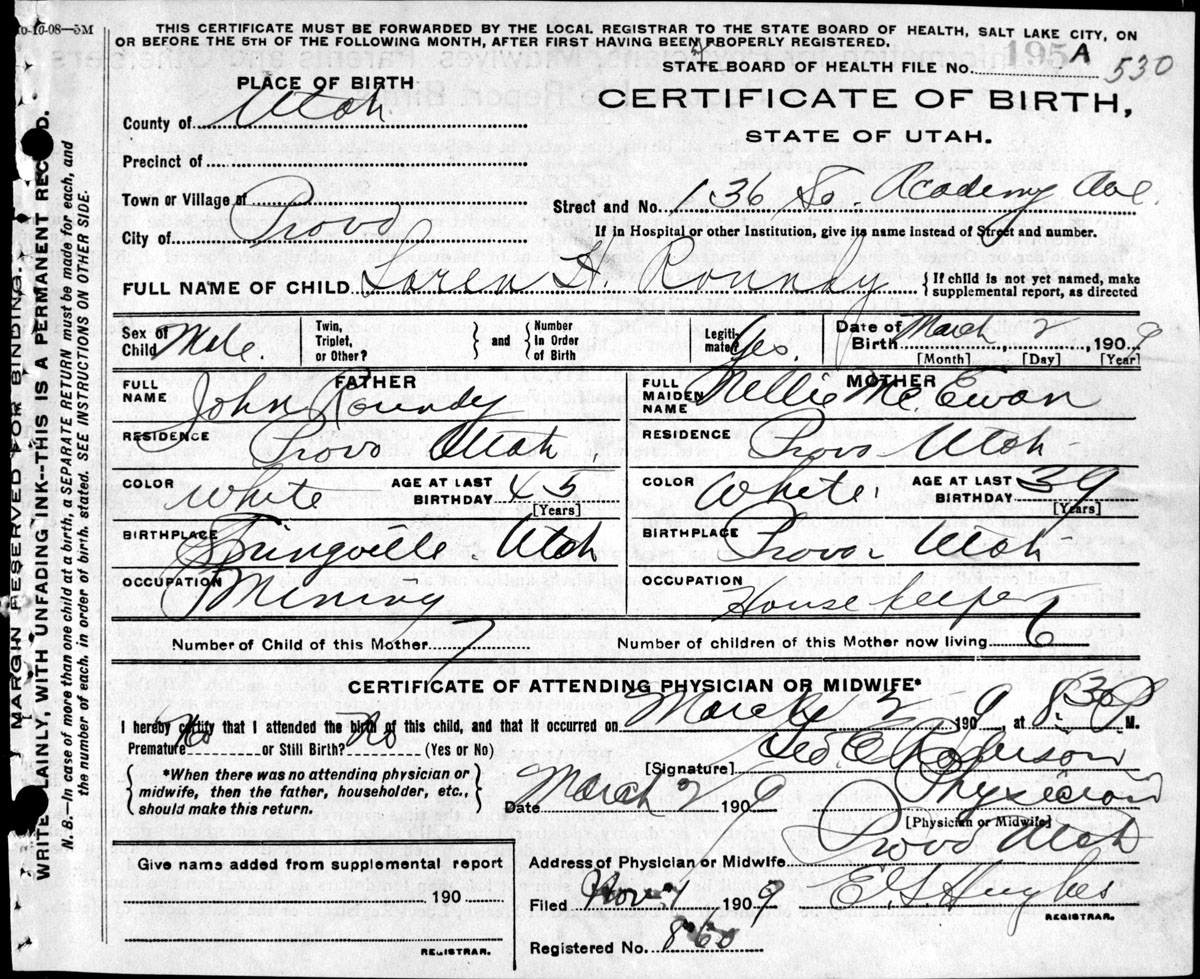 10-10-08—5M
THIS CERTIFICATE MUST BE FORWARDED BY THE LOCAL REGISTRAR TO THE STATE BOARD OF HEALTH, SALT LAKE CITY, ON
OR BEFORE THE 5TH OF THE FOLLOWING MONTH, AFTER FIRST HAVING BEEN PROPERLY REGISTERED.
STATE BOARD OF HEALTH FILE No. 195 A 530
PLACE OF BIRTH
CERTIFICATE OF BIRTH,
STATE OF UTAH.
County of Utah.
Precinct of
Town or Village of
Street and No. 136 So. Academy Ave.
City of Provo
If in Hospital or other Institution, give its name instead of Street and number.
FULL NAME OF CHILD Loren H. Roundy { If child is not yet named, make supplemental report, as directed
Sex of Child Male. Twin, Triplet, or Other? } and { Number In Order of Birth Legitimate? Yes. Date of Birth March 2, 1909
[Month] [Day] [Year]
FATHER
MOTHER
FULL NAME John Roundy
FULL MAIDEN NAME Nellie McEwan
RESIDENCE Provo Utah
RESIDENCE Provo Utah
COLOR White AGE AT LAST BIRTHDAY 45 [Years]
COLOR White. AGE AT LAST BIRTHDAY 39 [Years]
BIRTHPLACE Springville Utah
BIRTHPLACE Provo Utah
OCCUPATION Mining
OCCUPATION Housekeeper
Number of Child of this Mother 7
Number of children of this Mother now living 6
CERTIFICATE OF ATTENDING PHYSICIAN OR MIDWIFE*
I hereby certify that I attended the birth of this child, and that it occurred on March 2 1909 at 8:30 P M.
Premature No or Still Birth? No (Yes or No)
{ *When there was no attending physician or midwife, then the father, householder, etc., should make this return. }
[Signature] Geo. E. Robison
Date March 2 1909 Physician
[Physician or Midwife]
Address of Physician or Midwife Provo Utah
Give name added from supplemental report
190
REGISTRAR.
Filed Nov 1909 E G Hughes
REGISTRAR.
Registered No. 860
MARGIN RESERVED FOR BINDING.
WRITE PLAINLY, WITH UNFADING INK—THIS IS A PERMANENT RECORD.
N. B.—In case of more than one child at a birth, a SEPARATE RETURN must be made for each, and
the number of each, in order of birth, stated. SEE INSTRUCTIONS ON OTHER SIDE.